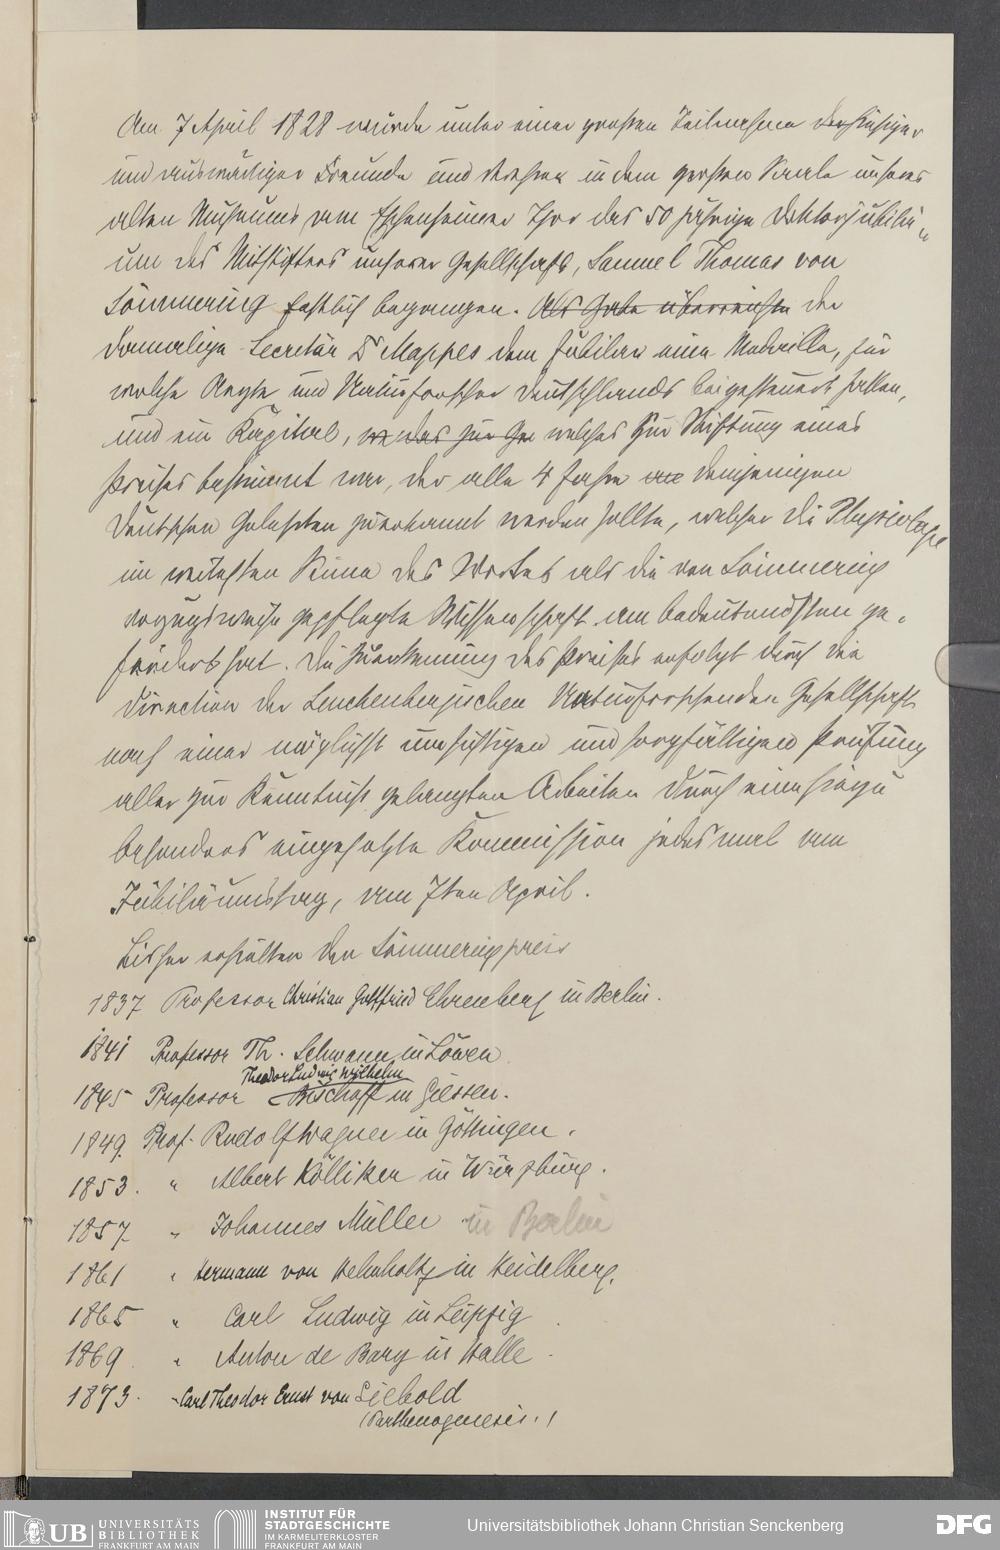 Am 7 April 1828 wurde unter einer großen Teilnahme der hiesiger
und auswärtiger Freunde und Verehrer in dem großen Saale unseres
alten Museums am Eschenheimer Thor das 50 jährige Doktorjubilä-
um des Mitstifters unserer Gesellschaft, Samuel Thomas von
Sömmering festlich begangen. Als Gabe überreichte der
damalige Secretär Dr Mappes dem Jubilar eine Medaille, für
welche Aerzte und Naturforscher Deutschlands beigesteuert hatten,
und ein Kapital, das zur welches zur Stiftung eines
Preises bestimmt war, der alle 4 Jahre demjenigen
deutschen Gelehrten zuerkannt werden sollte, welcher die Physiologie
im weitesten Sinne des Wortes als die von Sömmering
vorzugsweise gepflegte Wissenschaft am bedeutendsten ge-
fördert hat. Die Zuerkennung des Preises erfolgt durch die
Direction der Senckenbergischen Naturforschenden Gesellschaft
nach einer möglichst umsichtigen und sorgfältigen Prüfung
aller zur Kenntniß gelangten Arbeiten durch eine hiezu
besonders eingesetzte Kommission jedesmal am
Jubiläumstag, am 7ten April.
Bisher erhielten den Sömmeringpreis
1837 Professor Christian Gottfried Ehrenberg in Berlin.
1841 Professor Th. Schwann in Löwen
Theodor Ludwig Wilhelm
1845 Professor Bischoff in Giessen.
1849. Prof. Rudolf Wagner in Göttingen.
1853. " Albert Kölliker in Würzburg.
1857 " Johannes Müller in Berlin
1861 " Hermann von Helmholtz in Heidelberg.
1865 " Carl Ludwig in Leipzig
1869 " Anton de Bary in Halle
1873. " Carl Theodor Ernst von Siebold
(Parthenogenesis.)
UB UNIVERSITÄTS
BIBLIOTHEK
FRANKFURT AM MAIN
INSTITUT FÜR
STADTGESCHICHTE
IM KARMELITERKLOSTER
FRANKFURT AM MAIN
Universitätsbibliothek Johann Christian Senckenberg
DFG